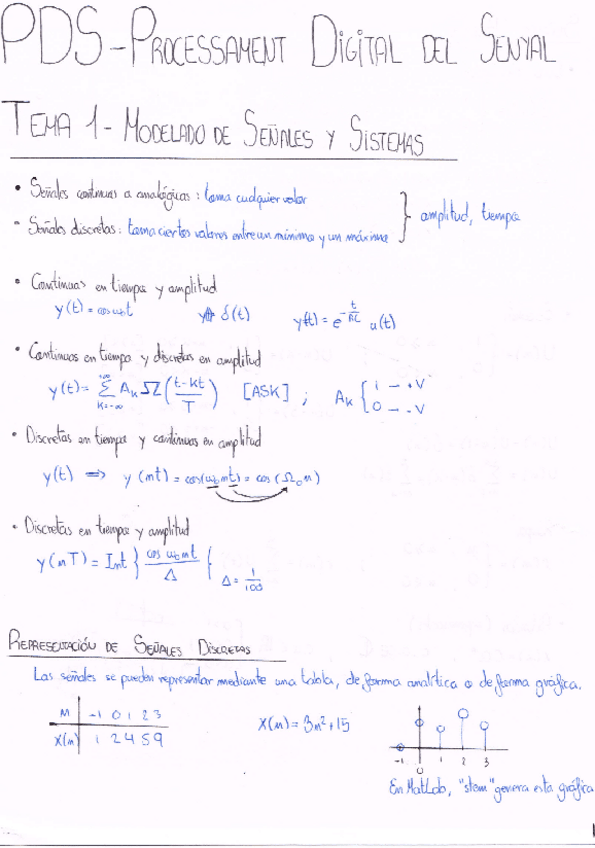 PDS - PROCESSAMENT DIGITAL DEL SENYAL
TEMA 1 - MODELADO DE SEÑALES Y SISTEMAS
• Señales continuas a analógicas : toma cualquier valor
- Señales discretas : toma ciertos valores entre un mínimo y un máximo } amplitud, tiempo
• Continuas en tiempo y amplitud
y(t) = cos ω₀t δ(t) y(t) = e^{-t/RC} u(t)
• Continuas en tiempo y discretas en amplitud
y(t) = Σ_{k=-∞}^{+∞} A_k Ω((t-kt)/T) [ASK] ; A_k { 1 — +V
0 — -V
• Discretas en tiempo y continuas en amplitud
y(t) ⟹ y(mt) = cos(ω₀mt) = cos(Ω₀n)
• Discretas en tiempo y amplitud
y(nT) = Int } cos ω₀mt / Δ { Δ = 1/100
REPRESENTACIÓN DE SEÑALES DISCRETAS
Las señales se pueden representar mediante una tabla, de forma analítica o de forma gráfica.
M | -1 0 1 2 3
X(n) | 1 2 4 5 9
X(n) = 3n²+15
-1 0 1 2 3
En MatLab, "stem" genera esta gráfica
1